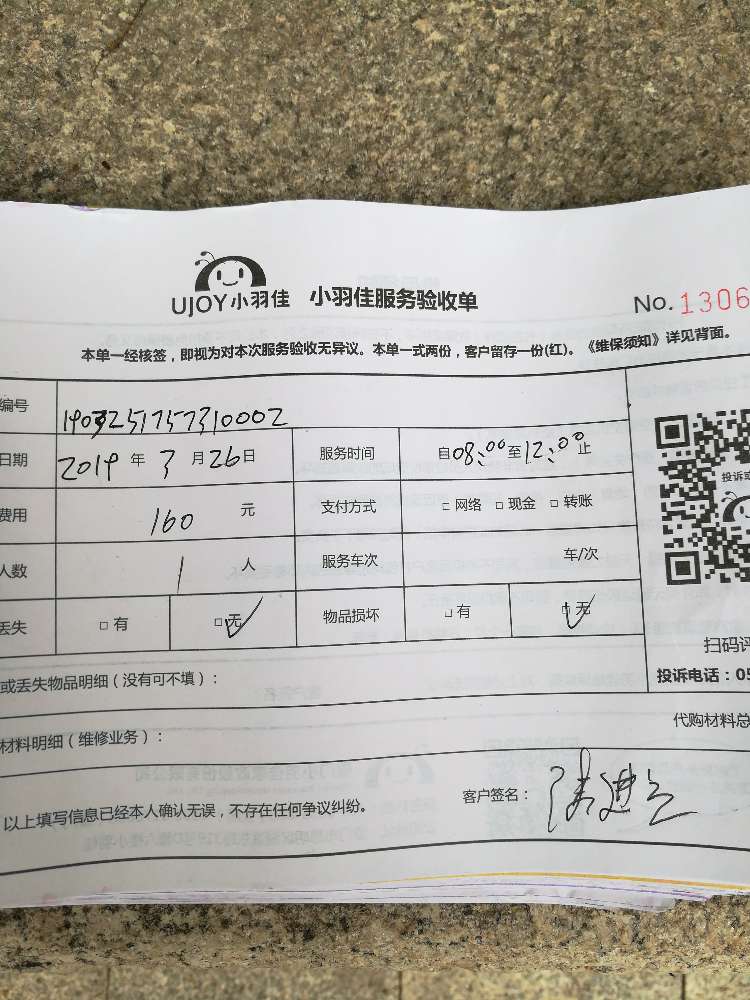 UJOY小羽佳 小羽佳服务验收单 No. 1306
本单一经核签，即视为对本次服务验收无异议。本单一式两份，客户留存一份(红)。《维保须知》详见背面。
编号 1903251757310002
日期 2019 年 3 月 26 日 服务时间 自 08:00 至 12:00 止
费用 160 元 支付方式 □ 网络 □ 现金 □ 转账
人数 1 人 服务车次 车/次
丢失 □ 有 □ 无 物品损坏 □ 有 □ 无
投诉或
扫码评
或丢失物品明细（没有可不填）： 投诉电话：05
材料明细（维修业务）： 代购材料总
以上填写信息已经本人确认无误，不存在任何争议纠纷。 客户签名：